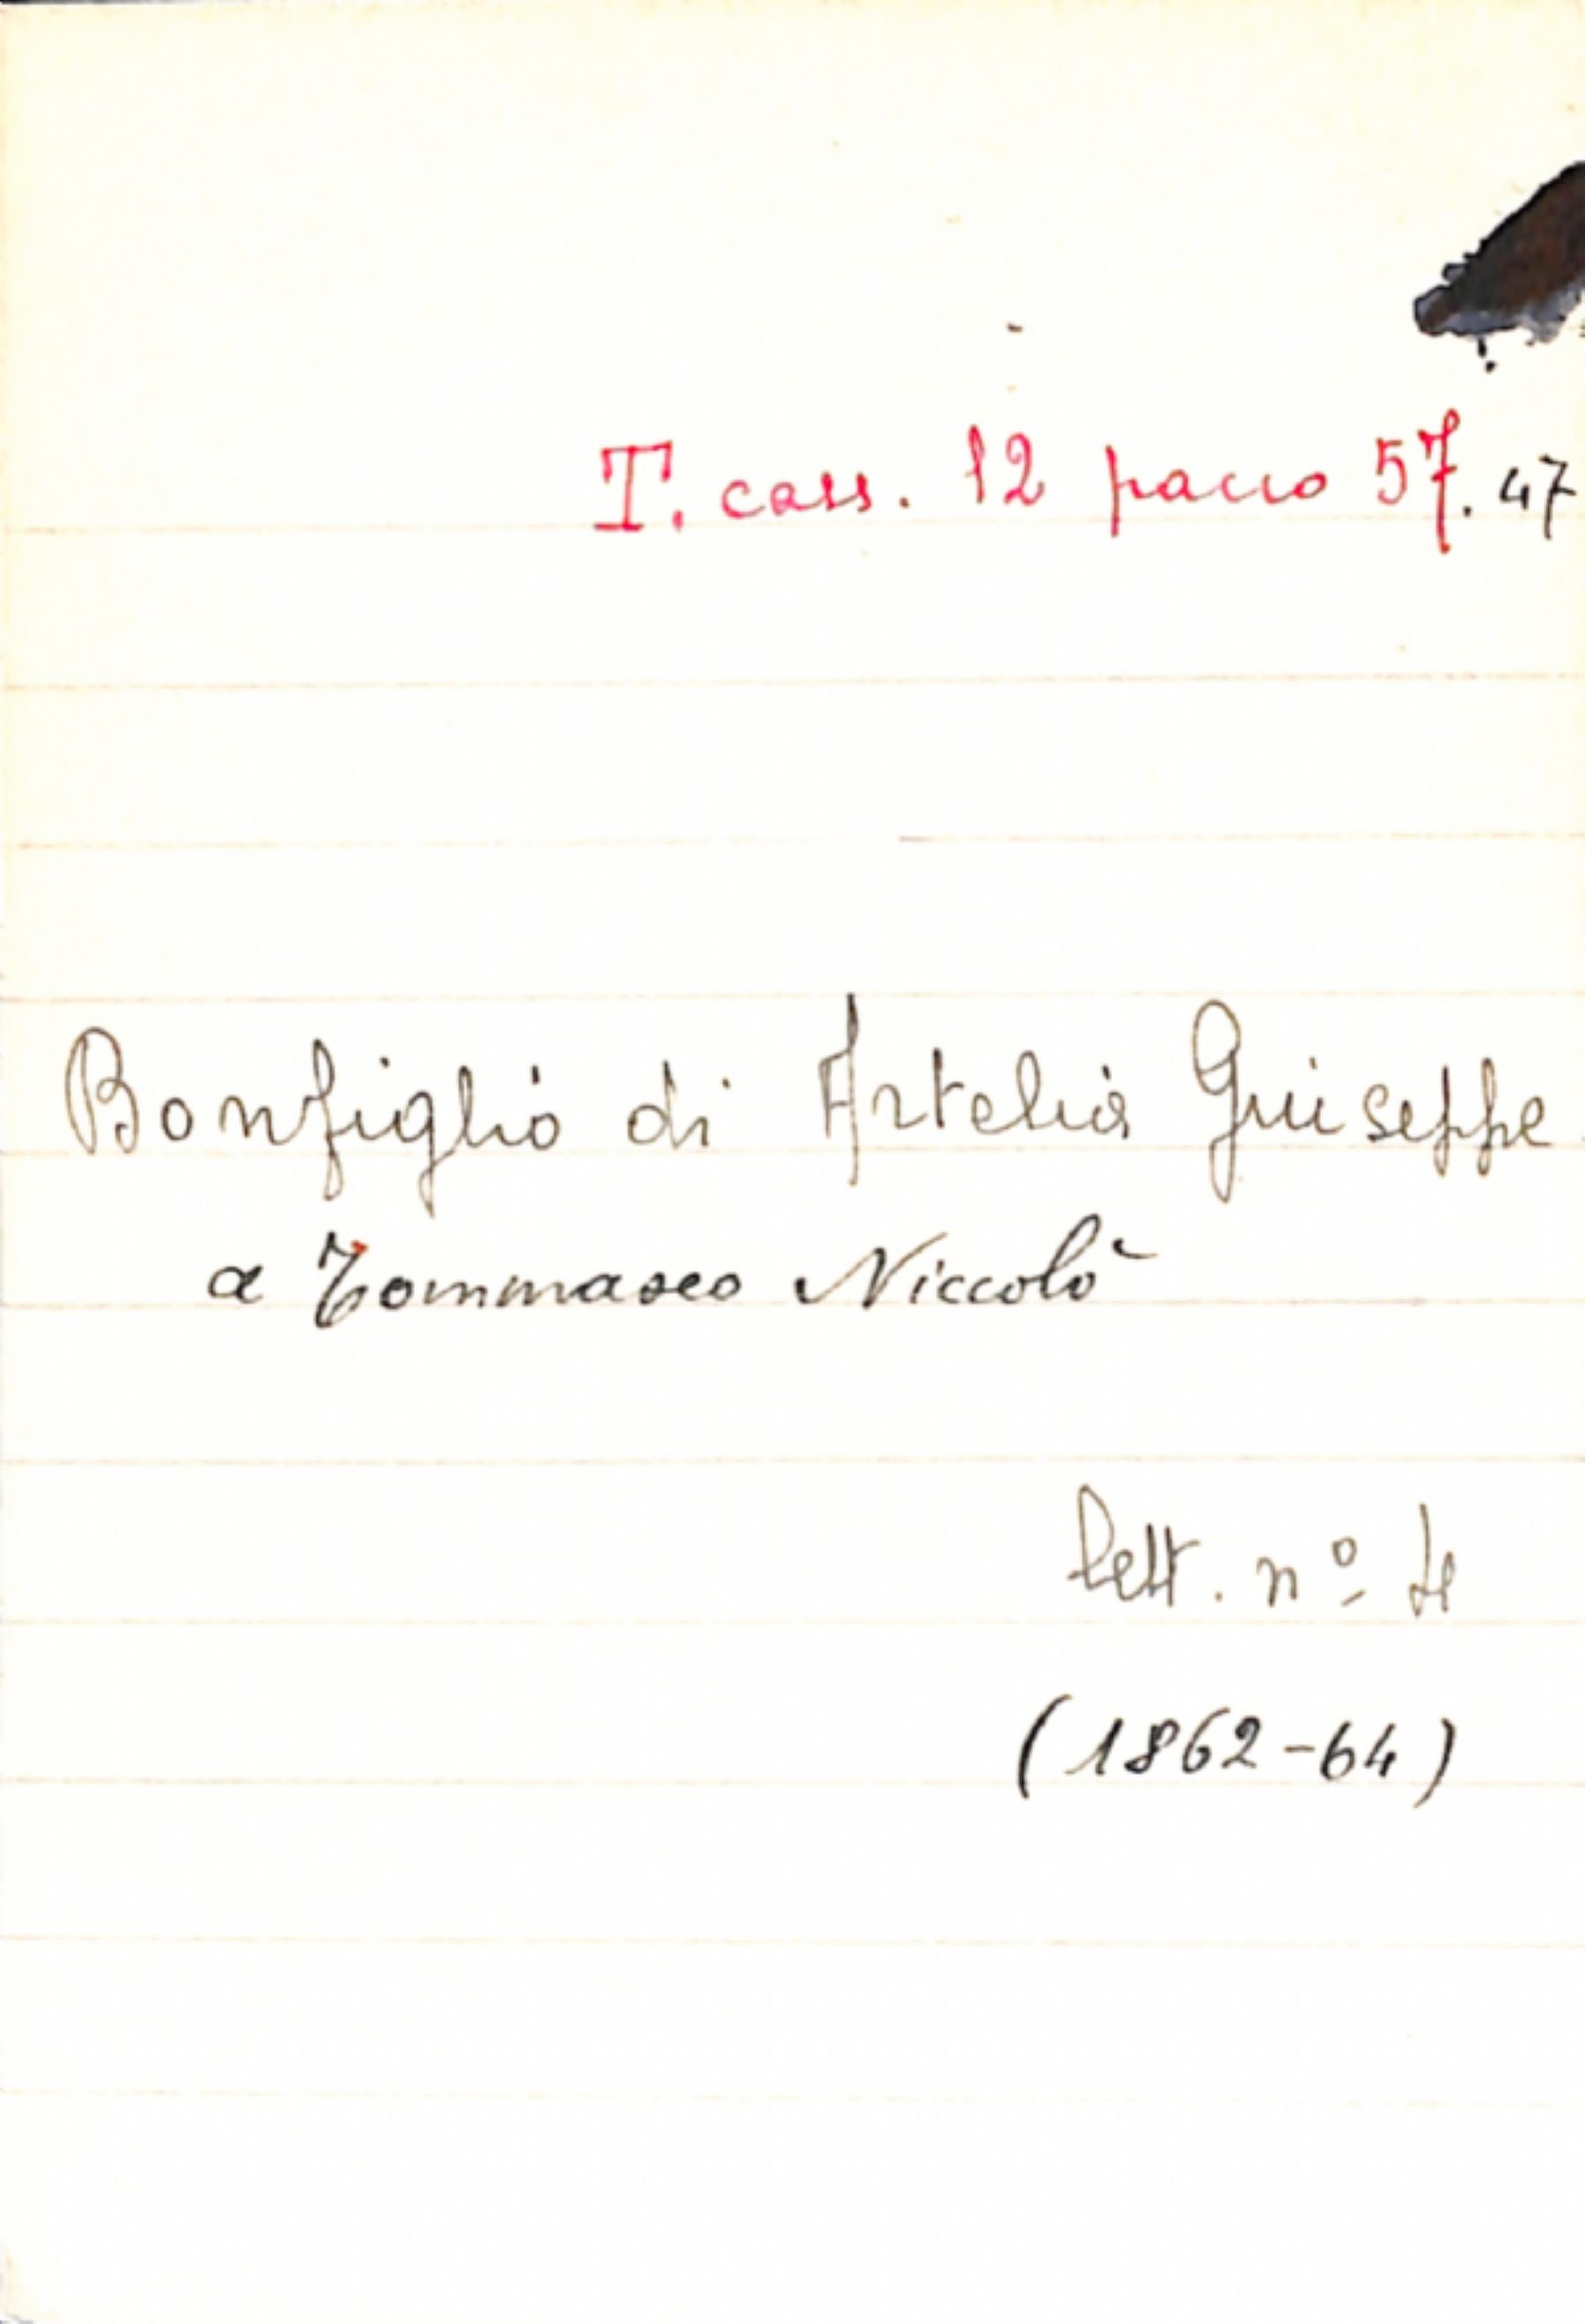 T. cass. 12 pacco 57. 47
Bonfiglio di Artelia Giuseppe
a Tommaseo Niccolò
lett. nº 4
(1862-64)